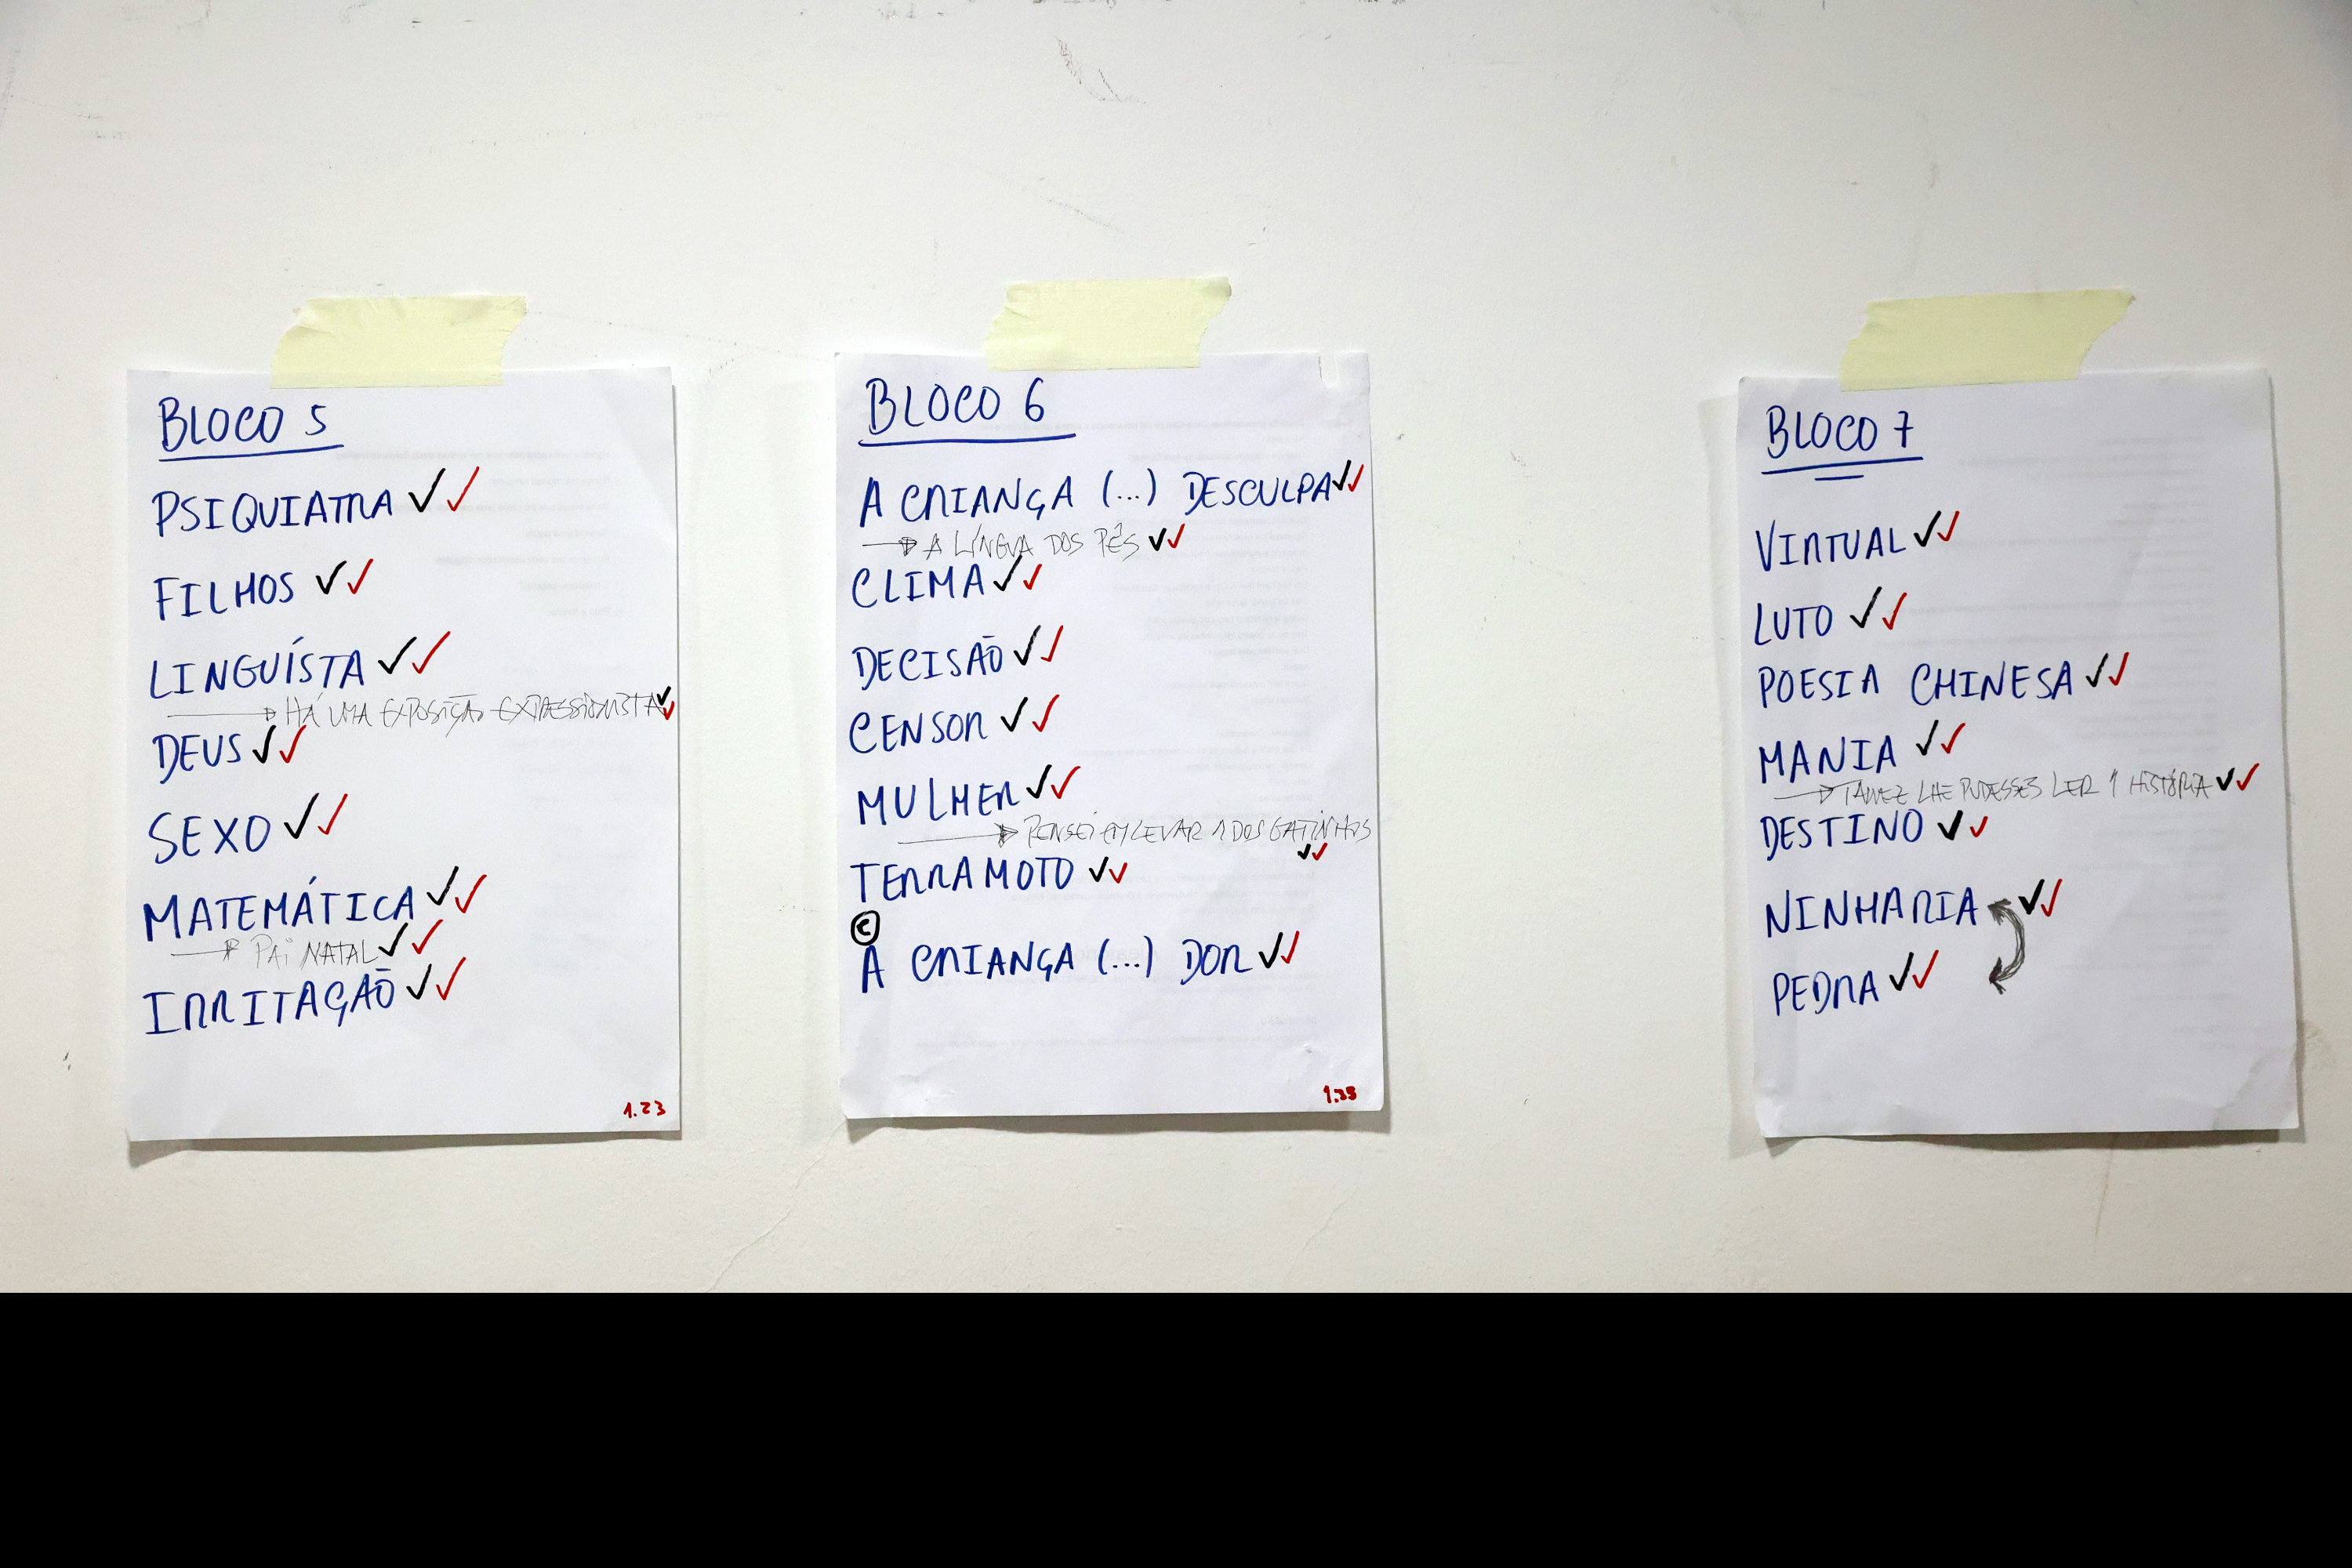 BLOCO 5
PSIQUIATRA ✓✓
FILHOS ✓✓
LINGUÍSTA ✓✓
→ HÁ UMA EXPOSIÇÃO EXPRESSIONISTA ✓✓
DEUS ✓✓
SEXO ✓✓
MATEMÁTICA ✓✓
→ PAI NATAL ✓✓
IRRITAÇÃO ✓✓
1.23
BLOCO 6
A CRIANÇA (...) DESCULPA ✓✓
→ A LÍNGUA DOS PÉS ✓✓
CLIMA ✓✓
DECISÃO ✓✓
CENSOR ✓✓
MULHER ✓✓
→ PENSEI EM LEVAR 1 DOS GATINHOS ✓✓
TERRAMOTO ✓✓
©
A CRIANÇA (...) DOR ✓✓
BLOCO 7
VIRTUAL ✓✓
LUTO ✓✓
POESIA CHINESA ✓✓
MANIA ✓✓
→ TALVEZ LHE PUDESSES LER 1 HISTÓRIA ✓✓
DESTINO ✓✓
NINHARIA ✓✓
PEDRA ✓✓